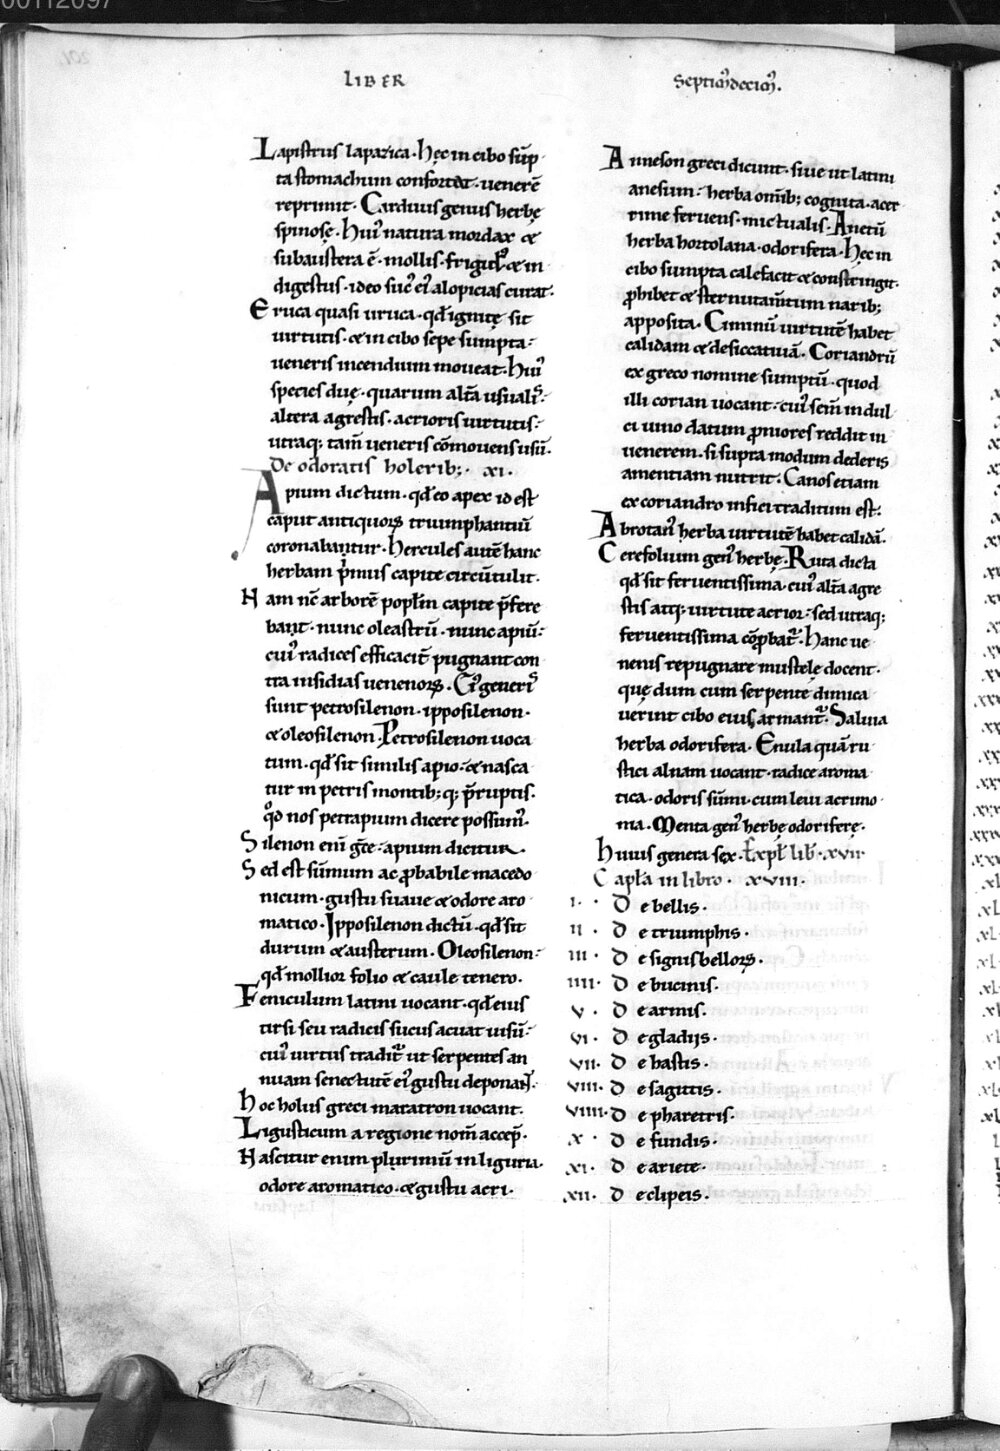 00112097
LIBER
Septimꝰdecimꝰ.
Lapistrus lapazica. hęc in cibo sūp
ta stomachum confortat. uenerē
reprimit. Carduus genus herbę
spinosę. huiꝰ natura mordax &
subaustera ē. mollis. frigidꝰ & in
digestus. ideo sucꝰ eiꝰ alopicias curat.
Eruca quasi uruca. qđ ignitę sit
uirtutis. & in cibo sepe sumpta.
ueneris incendium moueat. huiꝰ
species duę. quarum altā usualiˢ.
altera agrestis. acrioris uirtutis.
utraq; tam̄ ueneris cōmouens usū.
De odoratis holerib;. xi.
Apium dictum. qđ eo apex id est
caput antiquoꝝ triumphantiū
coronabantur. hercules autē hanc
herbam p̄mus capite circūtulit.
Nam nc̄ arborē popl̄m capite p̄fere
bant. nunc oleastrū. nunc apiū.
cuiꝰ radices efficacit̄ pugnant con
tra insidias uenenoꝝ. Eiꝰ generiˢ
sunt petrosilenon. ipposilenon.
& oleosilenon. Petrosilenon uoca
tum. qđ sit similis apio. & nasca
tur in petris montib; q; p̄ruptis.
qđ nos petrapium dicere possumꝰ.
Silenon eni᷎ g̅ce. apium dicitur.
Sed est sūmum ac ꝓbabile macedo
nicum. gustu suaue & odore aro
matico. Ipposilenon dictū. qđ sit
durum & austerum. Oleosilenon.
qđ mollior folio & caule tenero.
Feniculum latini uocant. qđ eius
tirsi seu radicis sucus acuat uisū.
cuiꝰ uirtus tradit᷑ ut serpentes an
nuam senectutē eiꝰ gustu deponant.
hoc holus greci maratron uocant.
Ligusticum a regione nom̄ accep̄.
Nascitur enim plurimū in liguria.
odore aromatico. & gustu acri.
Anneson greci dicunt. siue ut latini
anesum. herba om̄ib; cognita. acer
rime feruens. mictualis. Anetū
herba hortolana. odorifera. hęc in
cibo sumpta calefacit & constringit.
ꝓhibet & sternutam̄tum narib;
apposita. Ciminū uirtutē habet
calidam & desiccatiuā. Coriandrū
ex greco nomine sumptū. quod
illi corian uocant. cuiꝰ sem̄ in dul
ci uino datum ꝓniores reddit in
uenerem. si supra modum dederis
amentiam nutrit. Canos etiam
ex coriandro infici traditum est.
Abrotanꝰ herba uirtutē habet calidā.
Cerefolium genꝰ herbę. Ruta dicta
qđ sit feruentissima. cuiꝰ altā agre
stis atq; uirtute acrior. sed utraq;
feruentissima cōprobat᷑. hanc ue
nenis repugnare mustelę docent.
quę dum cum serpente dimica
uerint cibo eius armant᷑. Saluia
herba odorifera. Enula quā ru
stici alnam uocant. radice aroma
tica. odoris sūmi. cum leui acrimo
nia. Menta genꝰ herbę odoriferę.
huius genera sex. Expl̄ lib̄. xvii.
Capl̄a in libro. xviii.
i. De bellis.
ii. De triumphis.
iii. De signis belloꝝ.
iiii. De bucinis.
v. De armis.
vi. De gladiis.
vii. De hastis.
viii. De sagittis.
viiii. De pharetris.
x. De fundis.
xi. De ariete.
xii. De clipeis.